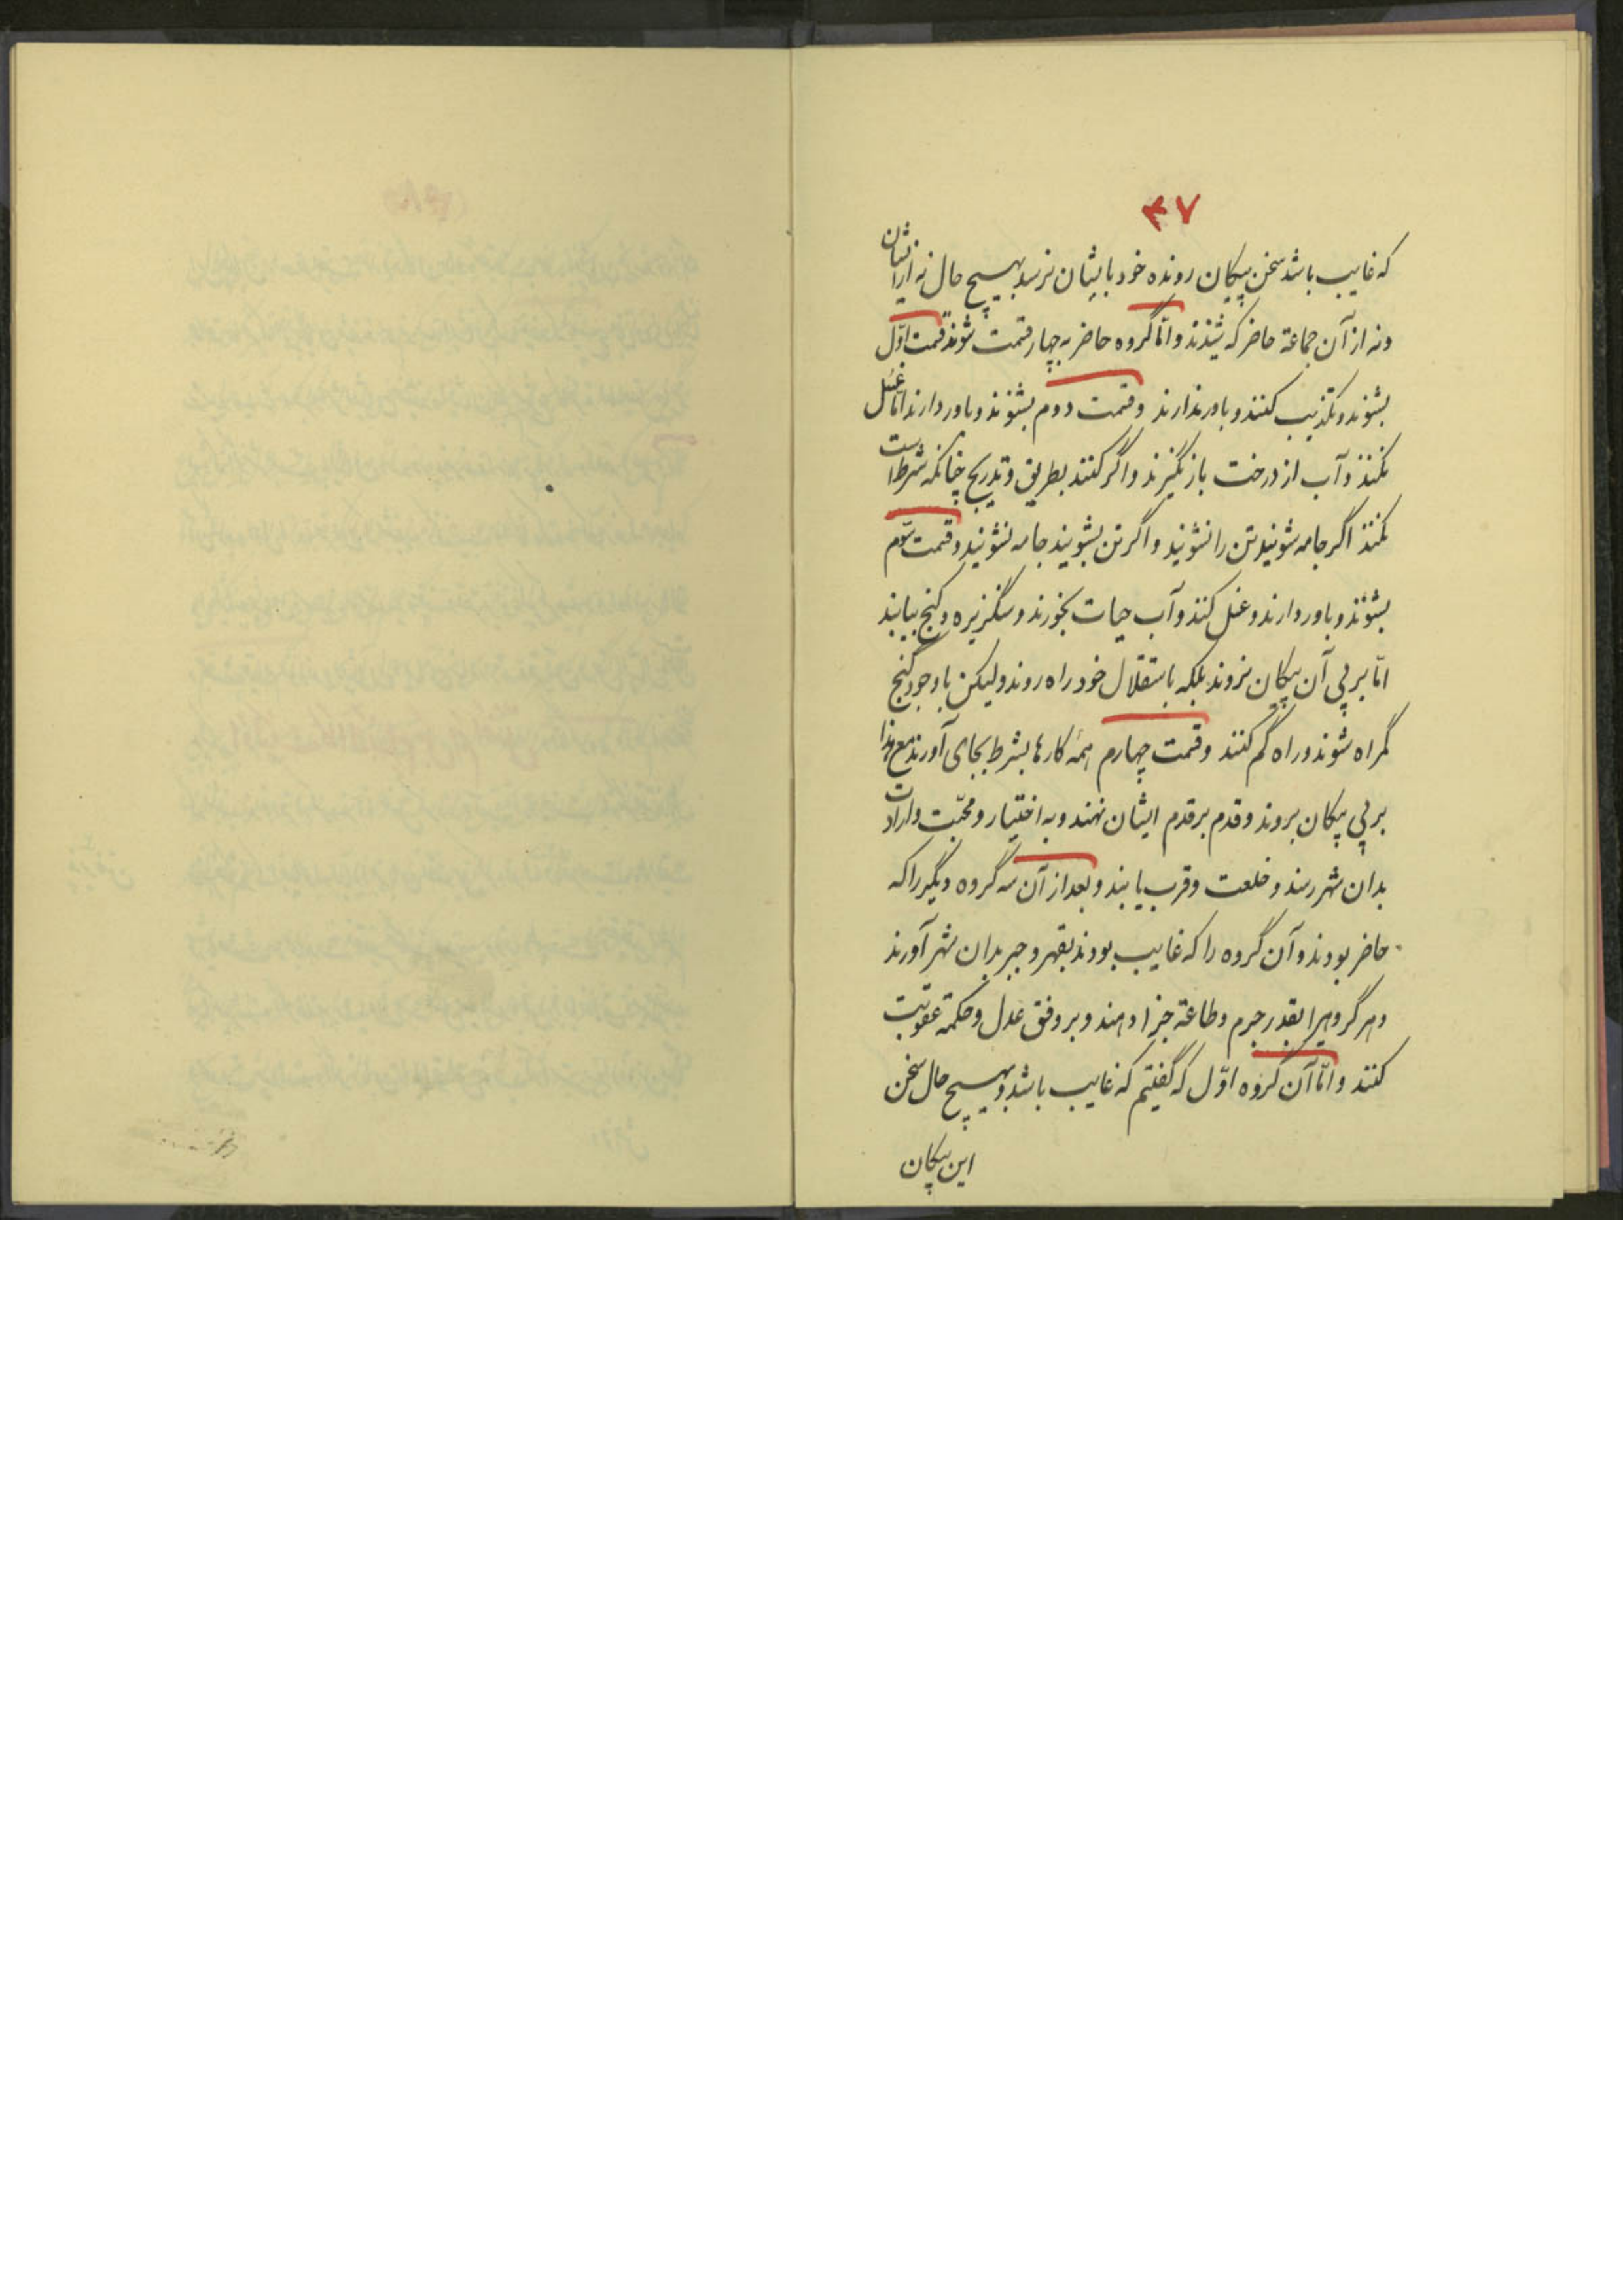 ۴۷
که غایب باشد سخن پیکان رونده خود بایشان نرسد بهیچ حال نه از ایشان
ونه از آن جماعة حاضر که شنیدند و امّا گروه حاضر به چهار قسمت شوند قسمت اوّل
بشنوند و تکذیب کنند و باور ندارند و قسمت دوم بشنوند و باور دارند امّا غسل
نکنند و آب از درخت باز نگیرند و اگر کنند بطریق و تدریج چنانکه شرط است
نکنند اگر جامه شویند تن را نشویند و اگر تن بشویند جامه نشویند و قسمت سوّم
بشنوند و باور دارند و غسل کنند و آب حیات بخورند و سنگریزه و گنج بیابند
امّا بر پی آن پیکان نروند بلکه باستقلال خود راه روند ولیکن با وجود گنج
گمراه شوند و راه گم کنند و قسمت چهارم همهٔ کارها بشرط بجای آورند مع هذا
بر پی پیکان بروند و قدم بر قدم ایشان نهند و به اختیار و محبّت و ارادت
بدان شهر رسند و خلعت و قرب یابند و بعد از آن سه گروه دیگر را که
حاضر بودند و آن گروه را که غایب بودند بقهر و جبر بدان شهر آورند
و هر گروهیرا بقدر جرم و طاعة جزا دهند و بر وفق عدل و حکمة عقوبت
کنند و امّا آن گروه اوّل که گفتیم که غایب باشد و بهیچ حال سخن
این پیکان